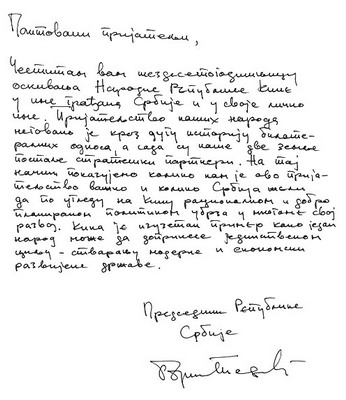 Поштовани пријатељи,
Честитам вам шездесетогодишњицу
оснивања Народне Републике Кине
у име грађана Србије и у своје лично
име. Пријатељство наших народа
неговано је кроз дугу историју билате-
ралних односа, а сада су наше две земље
постале стратешки партнери. На тај
начин показујемо колико нам је ово прија-
тељство важно и колико Србија жели
да по угледу на Кину рационалном и добро
планираном политиком убрза и умножи свој
развој. Кина је изузетан пример како један
народ може да допринесе јединственом
циљу - стварању модерне и економски
развијене државе.
Председник Републике
Србије